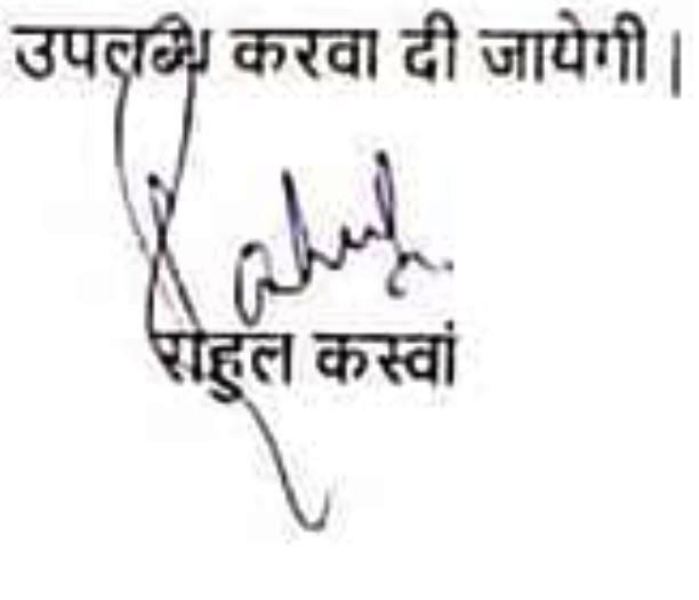 उपलब्ध करवा दी जायेगी।
Rahul
राहुल कस्वां